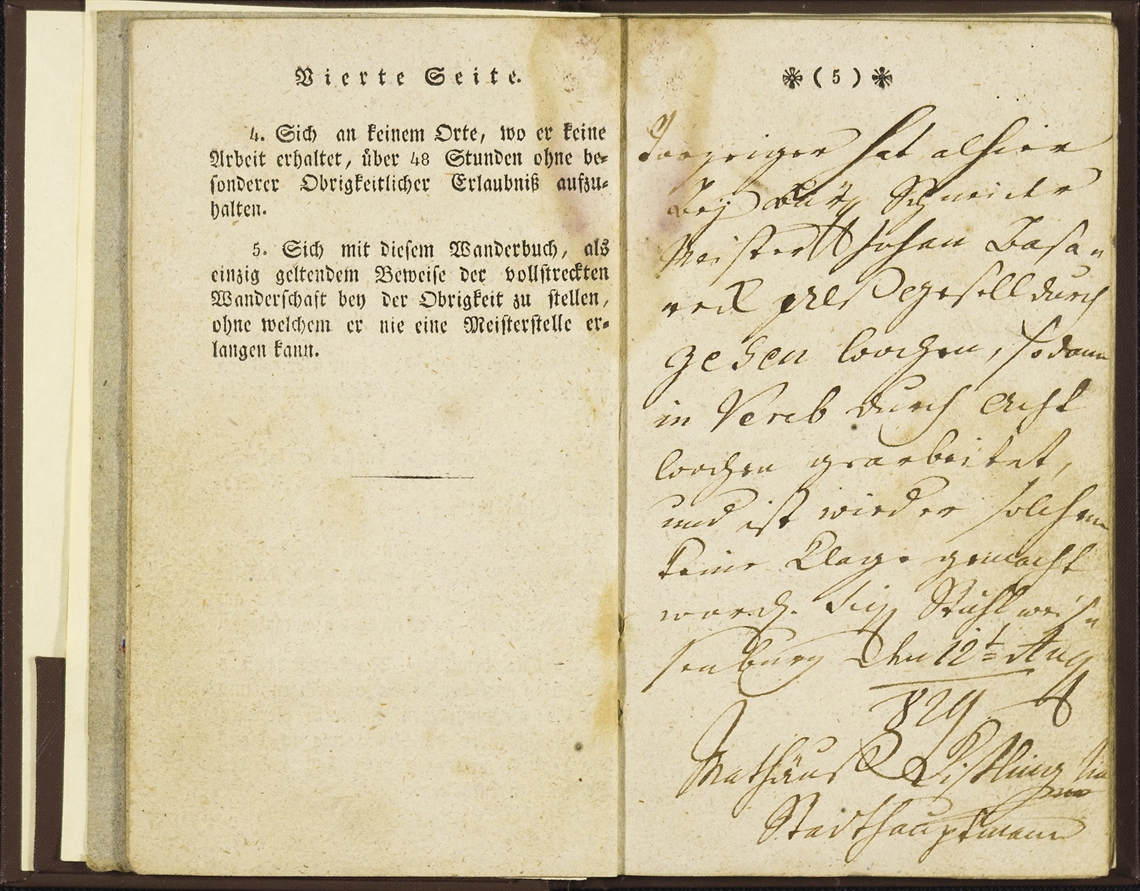 Vierte Seite.
4. Sich an keinem Orte, wo er keine
Arbeit erhaltet, über 48 Stunden ohne be-
sonderer Obrigkeitlicher Erlaubniß aufzu-
halten.
5. Sich mit diesem Wanderbuch, als
einzig geltendem Beweise der vollstreckten
Wanderschaft bey der Obrigkeit zu stellen,
ohne welchem er nie eine Meisterstelle er-
langen kann.
(5)
Vorzeiger hat alhier
bey Schneider
Meister Johan
gesell durch
Wochen, sodann
in Vereb durch Acht
Wochen gearbeitet,
und ist wieder solchen
keine Klage gemacht
word. Sig Stuhlweis
senburg den 12t Aug
829
Mathäus
Stadthauptmann